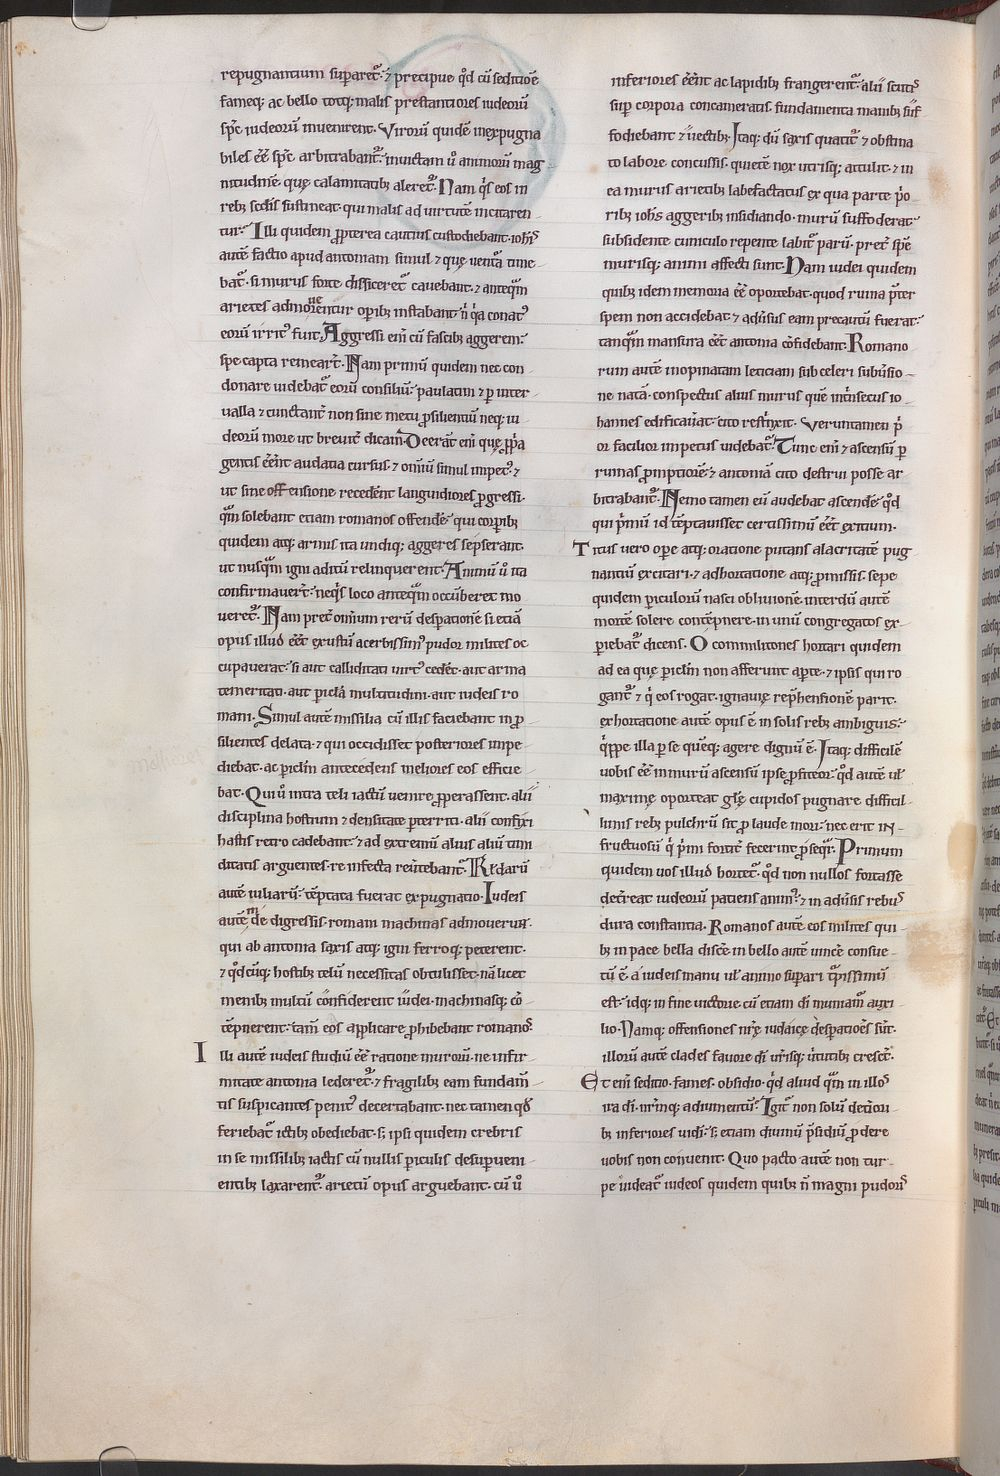 repugnantium suparet᷑. ⁊ precipue qd̄ cū seditiōe
fameq; ac bello totq; malis prestantiores iudeorū
sp̄c iudeorū inuenirent. Virorū quidē inexpugna
biles ēē sp̄c arbitrabant᷑. inuictam ů animorum mag
nitudinē. quę calamitatib; aleret᷑. Nam q̄s eos in
reb; scđis sustineat. qui malis ad uirtutē incitaren
tur. Illi quidem ꝓpterea cautius custodiebant. ioh̄s
autē factio apud antoniam simul ⁊ quę uentꝰa time
bat᷑. si murus forte dissiceret᷑ cauebant. ⁊ anteq̄m
arietes admouerentur opib; instabant. n̄ q̄a conatꝰ
eorū irritꝰ fuit. Aggressi eni cū facib; aggerem.
spe capta reuicart̄. Nam primū quidem nec con
donare uidebat᷑ eorū consiliū. paulatim ⁊ p inter
ualla ⁊ cunctant᷑ non sine metu ꝓsilientiū neq; iu
deorū more ut breuit̄ dicam. Deerāt eni quę ꝓpa
gentis ēent audatia cursus. ⁊ omiū simul impetꝰ. ⁊
ut sine offensione recederent languidiores ꝓgressi.
q̄m solebant etiam romanos offende᷑. qui corpib;
quidem atq; armis ita undiq; aggeres sepserant.
ut nusq̄m igni aditū relinquerent. Animū ů ita
confirmauert̄. neq̄s loco anteq̄m occūberet mo
ueret᷑. Nam preter omnium rerū desperationē si etiā
opus illud ēet exustū acerbissimꝰ pudor milites oc
cupauerat. si aut calliditati uirtꝰ cedet᷑. aut arma
temeritati. aut piclā multitudini. aut iudeis ro
mani. Simul autē missilia cū illis faciebant in p
silientes delata. ⁊ qui occidisset posteriores impe
diebat. ac piclin antecedens meliores eos efficie
bat. Qui ů intra teli iactū uenire ꝓperassent. alii
disciplina hostium ⁊ densitate pterriti. alii confixi
hastis retro cadebant. ⁊ ad extremū alius aliū timi
ditatis arguentes. re infecta reūtebant᷑. Kl̄darū
autē iuliarū. tēptata fuerat expugnatio. Iudeis
autē inde digressis. romani machinas admouerunt.
qui ab antonia saxis atq; igni ferroq; peterent.
⁊ qd̄cūq; hostib; telū necessitas obtulisset. nā licet
menib; multū cōnfiderent iudei. machinasq; cō
tēpnerent. tam̄ eos applicare ꝓhibebant romanoꝰ.
Illi autē iudeis studiū ēē ratione murorum. ne infir
mitate antonia lederet᷑. ⁊ fragilib; eam fundam̄
tis suspicantes penitꝰ decertabant. nec tamen qd̄
feriebat᷑ ictib; obediebat. s; ipsi quidem crebris
in se missilib; iactis cū nullis piculis desupueni
entib; laxarent᷑. arietū opus arguebant. cū ů
inferiores ēent ac lapidib; frangerent᷑. alii scutis
sup corpora concameratis fundamenta manib; suf
fodiebant ⁊ uectib;. Itaq; dū saxis quatit᷑ ⁊ obstina
to labore concussis. quietē nox utrisq; attulit. ⁊ in
ea murus arietib; labefactatus ex qua parte p̄o
rib; ioh̄s aggerib; insidiando. murū suffoderat.
subsidente cuniculo repente labit᷑ parū. pret᷑ spē
murisq; animi affecti sunt. Nam iudei quidem
quib; idem memoria ēē oportebat. quod ruina p̄ter
spem non accidebat. ⁊ aduīsus eam precautū fuerat.
tanq̄m mansura ēet antonia cōfidebant. Romano
rum autē inopinatam leticiam sub celeri subuīsio
ne natā. conspectus alius murus quē int̄nsecus io
hannes edificauīat. cito restīnxit. Veruntamen p̄
or facilior impetus uidebat᷑. Tunc eni ⁊ ascensū p
ruinas ꝓmptiorē. ⁊ antoniā cito destrui posse ar
bitrabant᷑. Nemo tamen eū audebat ascende᷑. qd̄
qui p̄mū id tēptauisset certissimū ēet exitium.
Titus uero ope atq; oratione putans alacritatē pug
nantiū excitari. ⁊ adhortatione atq; ꝓmissis. sepe
quidem piculorū nasci obliuionē. interdū autē
mortē solere contēpnere. in unū congregatos ex
piebat᷑ dicens. O commilitones hortari quidem
ad ea que piclin non afferunt apte. ⁊ ipsis qui ro
gant᷑ ⁊ q̄ eos rogat. ignauię repħensionē parit.
exhortatione autē opus ē in solis reb; ambiguis.
q̄ppe illa p se quēq; agere dignū ē. Itaq; difficilē
uobis ēē in murū ascensū ipse ꝓfiteor. qd̄ autē ul̄
maxime oporteat glę cupidos pugnare difficil
limis reb; pulchrū sit ꝓ laude mori. nec erit in
fructuosū q̄ p̄mi fortit᷑ fecerint ꝓseq̄r. Primum
quidem uos illud hortet᷑. qd̄ non nullos fortasse
det̄reat iudeorū patiens animꝰ. ⁊ in aduīsis rebus
dura constantia. Romanos autē eos milites qui
b; in pace bella disce᷑. in bello autē uince᷑ consue
tū ē. a iudeis manu ul̄ animo supari t̄pissimū
est. idq; in fine uictorię. cū etiam di iuuiam᷑ auxi
lio. Namq; offensiones nr̄ę iudaicę despatiōes sūt.
illorū autē clades fauore di ur̄isq; uītutib; crescit.
Et eni seditio. fames. obsidio. qd̄ aliud q̄m in illoꝰ
ira di. nr̄inq; adiumentū. Igit᷑ non solū det̄iori
b; inferiores uidi. s; etiam diuinū p̄sidiū ꝓdere
uobis non conuenit. Quo pacto autē non tur
pe uideat᷑ iudeos quidem quib; n̄ magni pudoris